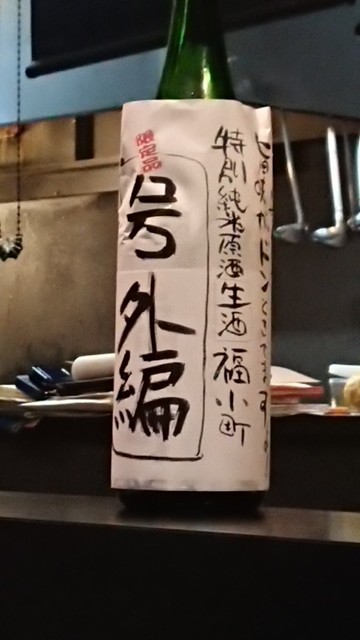 旨味がドンときてます。
特別純米原酒生酒 福小町
限定品
号外編